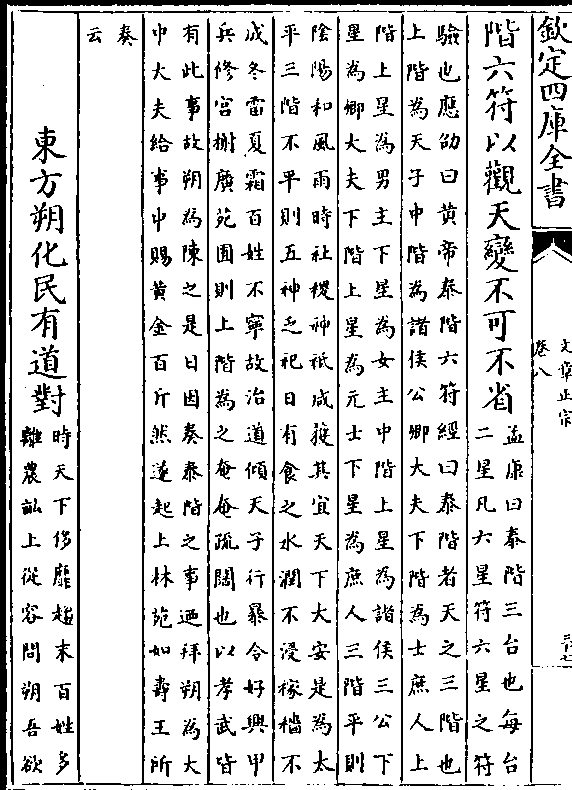 欽定四庫全書
文章正宗
卷八
階六符以觀天變不可不省
孟康曰泰階三台也每台
二星凡六星符六星之符
驗也應劭曰黃帝泰階六符經曰泰階者天之三階也
上階為天子中階為諸侯公卿大夫下階為士庶人上
階上星為男主下星為女主中階上星為諸侯三公下
星為卿大夫下階上星為元士下星為庶人三階平則
陰陽和風雨時社稷神祇咸獲其宜天下大安是為太
平三階不平則五神乏祀日有食之水潤不浸稼穡不
成冬雷夏霜百姓不寧故治道傾天子行暴令好興甲
兵修宮榭廣苑囿則上階為之奄奄疏闊也以孝武皆
有此事故朔為陳之是日因奏泰階之事迺拜朔為大
中大夫給事中賜黃金百斤然遂起上林苑如壽王所
奏
云
東方朔化民有道對
時天下侈靡趨末百姓多
離農畝上從容問朔吾欲